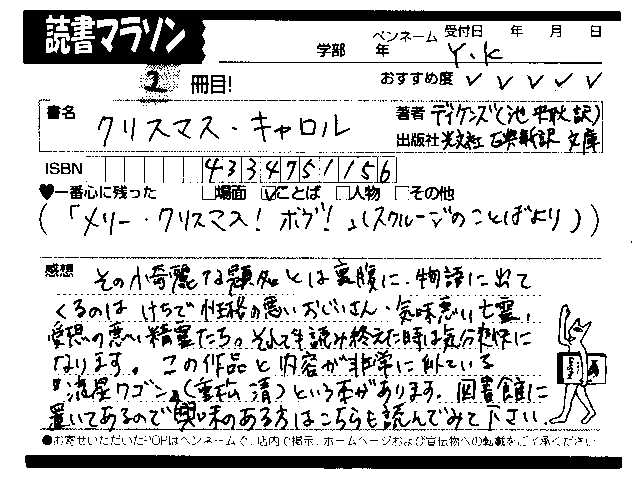 読書マラソン
学部 年 ペンネーム 受付日 年 月 日
Y.K
2 冊目!
おすすめ度 ✓ ✓ ✓ ✓ ✓
書名 クリスマス・キャロル
著者 ディケンズ(池 央耿 訳)
出版社 光文社 古典新訳 文庫
ISBN 4334751156
♥一番心に残った □場面 ☑ことば □人物 □その他
(「メリー・クリスマス! ボブ!」(スクルージのことばより))
感想 その小奇麗な題名とは裏腹に、物語に出て
くるのは けちで性格の悪いおじいさん、気味悪い亡霊、
愛想の悪い精霊たち。そんでも読み終えた時は気分爽快に
なります。この作品と内容が非常に似ている
『流星ワゴン』(重松 清)という本があります。図書館に
置いてあるので興味のある方はこちらも読んでみて下さい。
●お寄せいただいたPOPはペンネームで、店内で掲示、ホームページおよび宣伝物への転載をご了承ください